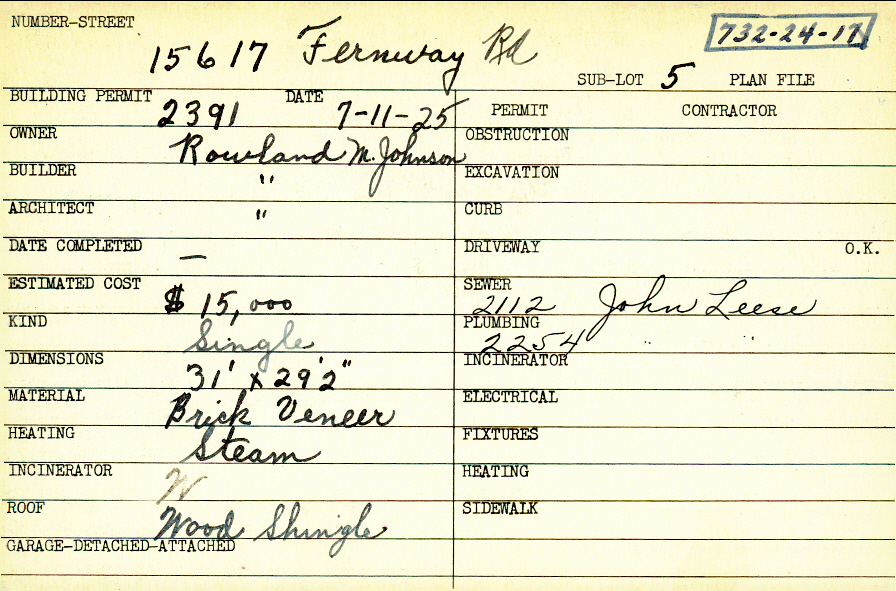 NUMBER-STREET
15617 Fernway Rd
732-24-17
SUB-LOT 5 PLAN FILE
BUILDING PERMIT 2391 DATE 7-11-25
OWNER Rowland M. Johnson
BUILDER "
ARCHITECT "
DATE COMPLETED —
ESTIMATED COST $15,000
KIND Single
DIMENSIONS 31' x 29'2"
MATERIAL Brick Veneer
HEATING Steam
INCINERATOR
ROOF Wood Shingle
GARAGE-DETACHED-ATTACHED
PERMIT CONTRACTOR
OBSTRUCTION
EXCAVATION
CURB
DRIVEWAY O.K.
SEWER 2112 John Leese
PLUMBING 2254 " "
INCINERATOR
ELECTRICAL
FIXTURES
HEATING
SIDEWALK